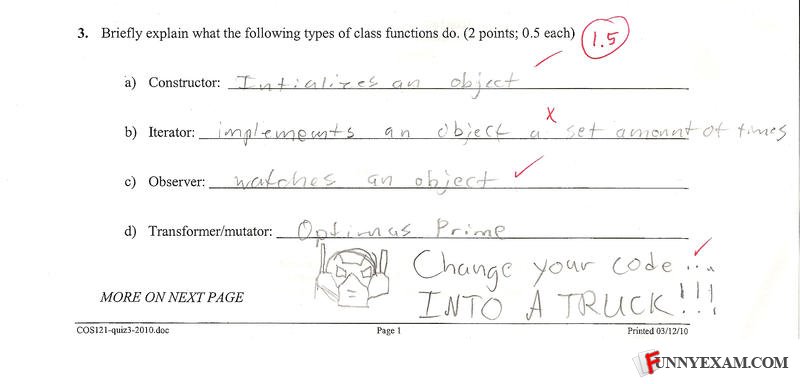 3. Briefly explain what the following types of class functions do. (2 points; 0.5 each) 1.5
a) Constructor: Intializes an object
b) Iterator: implements an object a set amount of times
x
c) Observer: watches an object
d) Transformer/mutator: Optimus Prime
Change your code ...
INTO A TRUCK!!!
MORE ON NEXT PAGE
COS121-quiz3-2010.doc Page 1 Printed 03/12/10
FUNNYEXAM.COM